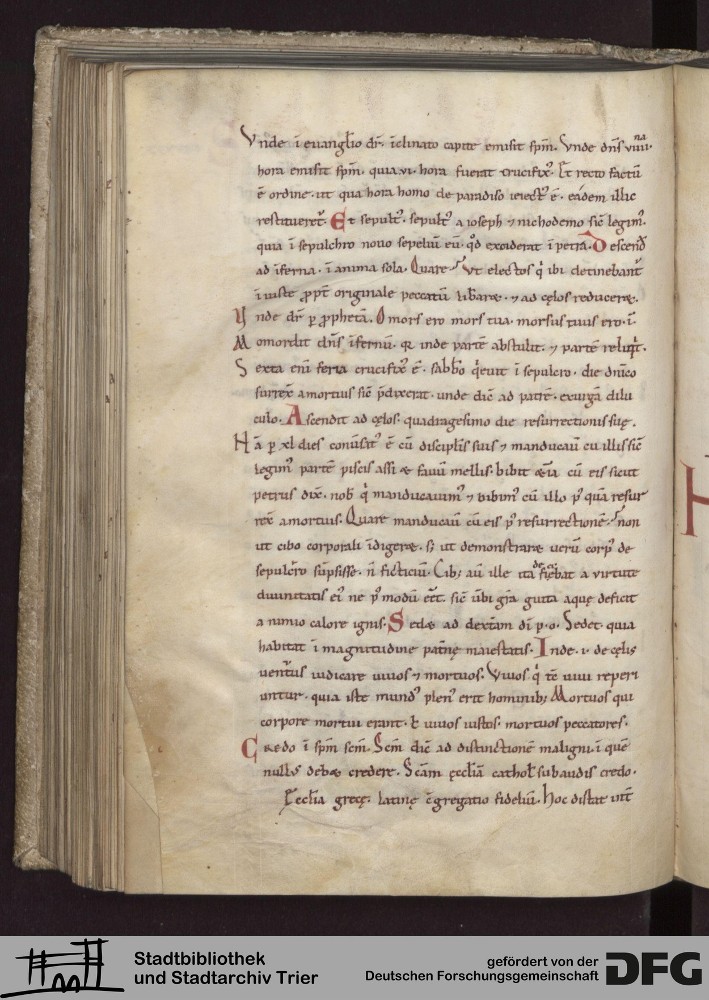 Vnde ī euangl̄io dr̄. īclinato capite emisit sp̄m. Vnde dn̄s viiii na
hora emisit sp̄m. quia vi. hora fuerat crucifix᷒. Et recto factū
ē ordine. ut qua hora homo de paradiso eiect᷒ ē. eadem illic
restitueret᷑. Et sepult᷒. sepult᷒ a ioseph ⁊ nichodemo sic̄ legim᷒.
quia ī sepulchro nouo sepeliuī eū. qd̄ exciderat ī petra. Descend̄
ad īferna. ī anima sola. Quare? Vt electos q̄ ibi detinebant᷑
iniuste ꝓpt̄ originale peccatū lib̄aret. ⁊ ad cęlos reduceret.
Vnde dr̄ ꝑ ꝓphetā. O mors ero mors tua. morsus tuus ero. ī.
Momordit dn̄s īfernū. q̄ inde partē abstulit. ⁊ partē reliq̄t.
Sexta eni feria crucifix᷒ ē. sabb̄o q̄euit ī sepulcro. die dn̄ico
surrex̄ a mortuis sic̄ p̄dixerat. unde dic̄ ad patrē. exurgā dilu
culo. Ascendit ad cęlos. quadragesimo die resurrectionis suę.
Nā ꝑ xl dies conuersat᷒ ē cū discipl̄is suis ⁊ manducauī cū illis sic̄
legim᷒ partē piscis assi et fauū mellis. bibit etiā cū eis sicut
petrus dix̄. nob̄ q̄ manducauim᷒ ⁊ bibim᷒ cū illo p᷒ quā resur
rex̄ a mortuis. Quare manducauī cū eis p᷒ resurrectionē? non
ut cibo corporali īdigeret. s; ut demonstraret uerū corp᷒ de
sepulcro sūpsisse. n̄ ficticiū. Cib; aū ille ita deficiebat a virtute
diuinitatis ei᷒ ne p᷒ modū eēt. sic̄ ūbi gr̄a gutta aquę deficit
a nimio calore ignis. Sedet ad dextām dī p. o. Sedet. quia
habitat ī magnitudine patn̄ę maiestatis. Inde. i. de cęlis
uentur᷒ iudicare uiuos ⁊ mortuos. Viuos q̄ tē uiui reperi
untur. quia iste mund᷒ plen᷒ erit hominib; Mortuos qui
corpore mortui erant. ł uiuos iustos. mortuos peccatores.
Credo ī sp̄m scm̄. Scm̄ dic̄ ad distinctionē maligni. ī quē
nullus debet credere. Scām ęccl̄iā cathol̄ subaudis credo.
Ęccl̄ia gręcę. latinę c̄gregatio fideliū. Hoc distat int̄
Stadtbibliothek
und Stadtarchiv Trier
gefördert von der
Deutschen Forschungsgemeinschaft
DFG